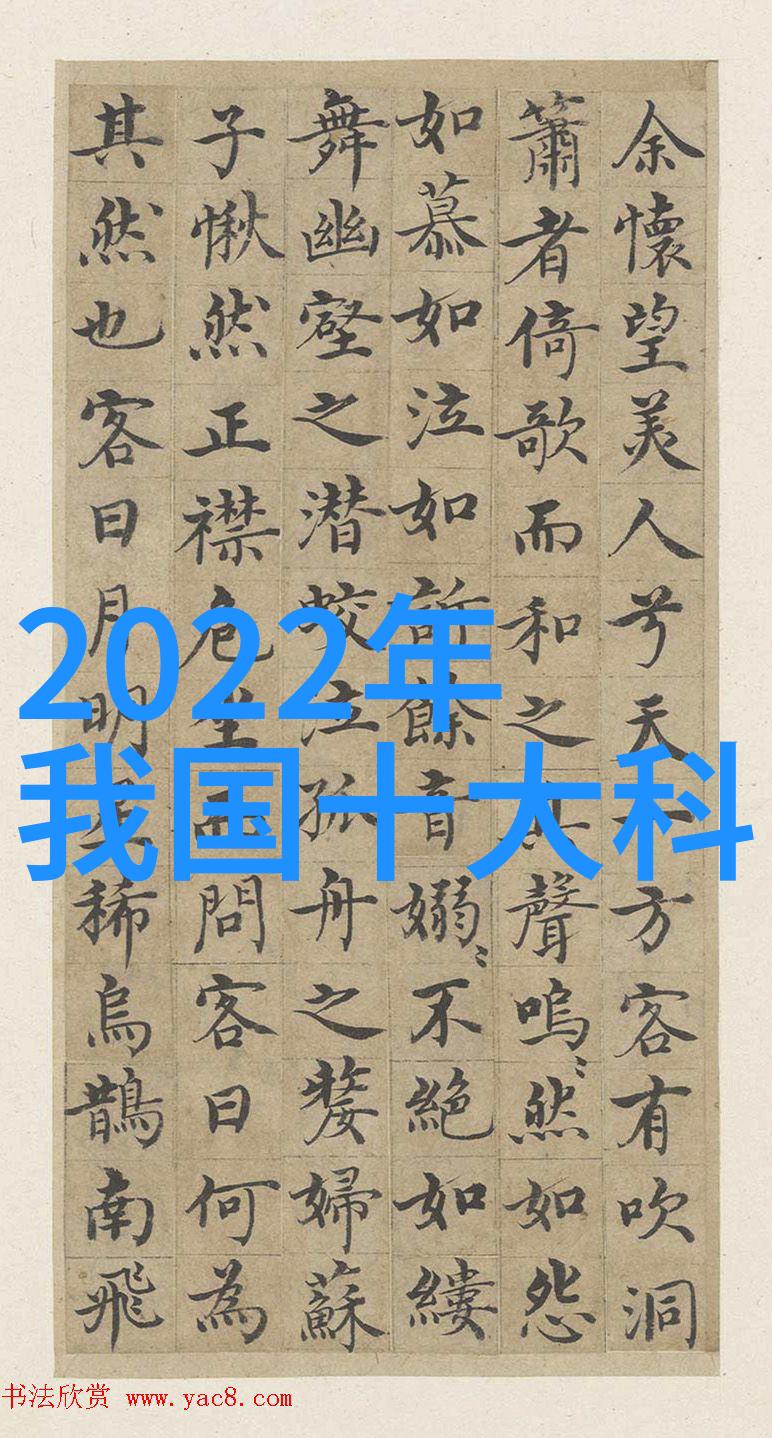 余懷望美人兮天一方客有吹洞
簫者倚歌而和之其聲嗚〻然如怨
如慕如泣如訴餘音嫋〻不絕如縷
舞幽壑之潛蛟泣孤舟之嫠婦蘇
子愀然正襟危坐而問客曰何為
其然也客曰月明星稀烏鵲南飛
2022年
我国十大科
书法欣赏 www.yac8.com